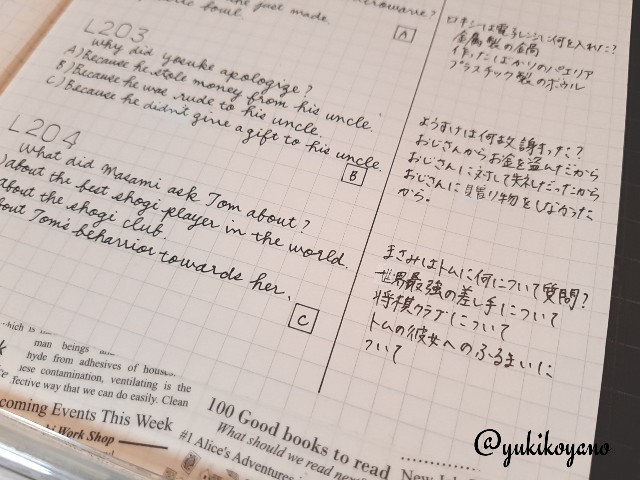 just made
microwave?
bowl.
A
L203
Why did youke apologize?
A) Because he stole money from his uncle.
B) Because he was rude to his uncle.
C) Because he didn't give a gift to his uncle.
B
L204
What did Masami ask Tom about?
) about the best shogi player in the world.
about the shogi club.
bout Tom's behavior towards her.
C
ロキシーは電子レンジに何を入れた?
金属製の金属
作ったばかりのパエリア
プラスチック製のボウル
ようすけは何故謝った?
おじさんからお金を盗んだから
おじさんに対して失礼だったから
おじさんに贈り物をしなかった
から。
まさみはトムに何について質問?
世界最強の差し手について
将棋クラブについて
トムの彼女へのふるまいに
ついて
which is
man beings
hyde from adhesives of
ese contamination, ventilating is the
fective way that we can do easily. Clean
coming Events This Week
Work Shop
100 Good books to read
What should we read next
#1 Alice's Adventures
New
@yukikoyano